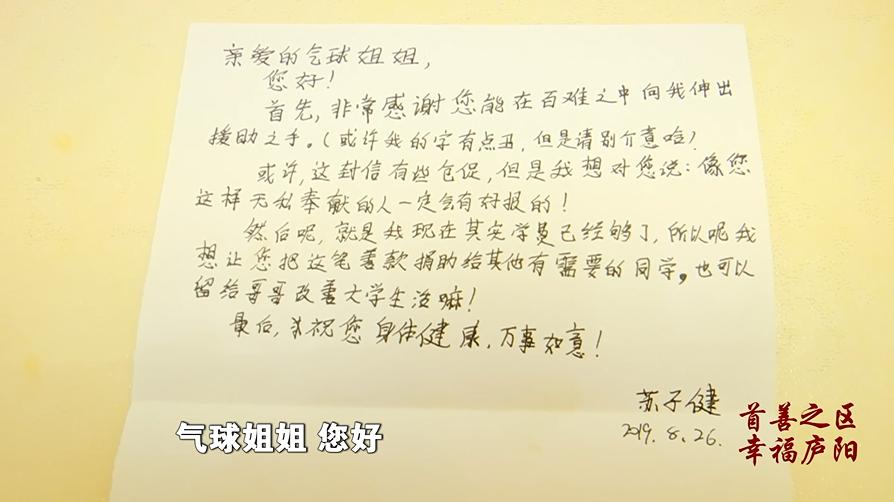 亲爱的气球姐姐，
您好！
首先，非常感谢您能在百难之中向我伸出
援助之手。（或许我的字有点丑，但是请别介意哈）
或许，这封信有些仓促，但是我想对您说：像您
这样无私奉献的人一定会有好报的！
然后呢，就是我现在其实学费已经够了，所以呢我
想让您把这笔善款捐助给其他有需要的同学。也可以
留给哥哥改善大学生活嘛！
最后，求祝您身体健康，万事如意！
苏子健
2019.8.26.
气球姐姐 您好
首善之区
幸福庐阳